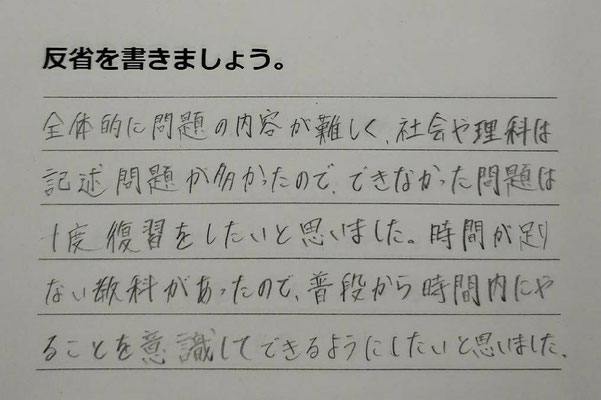 反省を書きましょう。
全体的に問題の内容が難しく、社会や理科は
記述問題が多かったので、できなかった問題は
十度復習をしたいと思いました。時間が足り
ない教科があったので、普段から時間内にや
ることを意識してできるようにしたいと思いました。